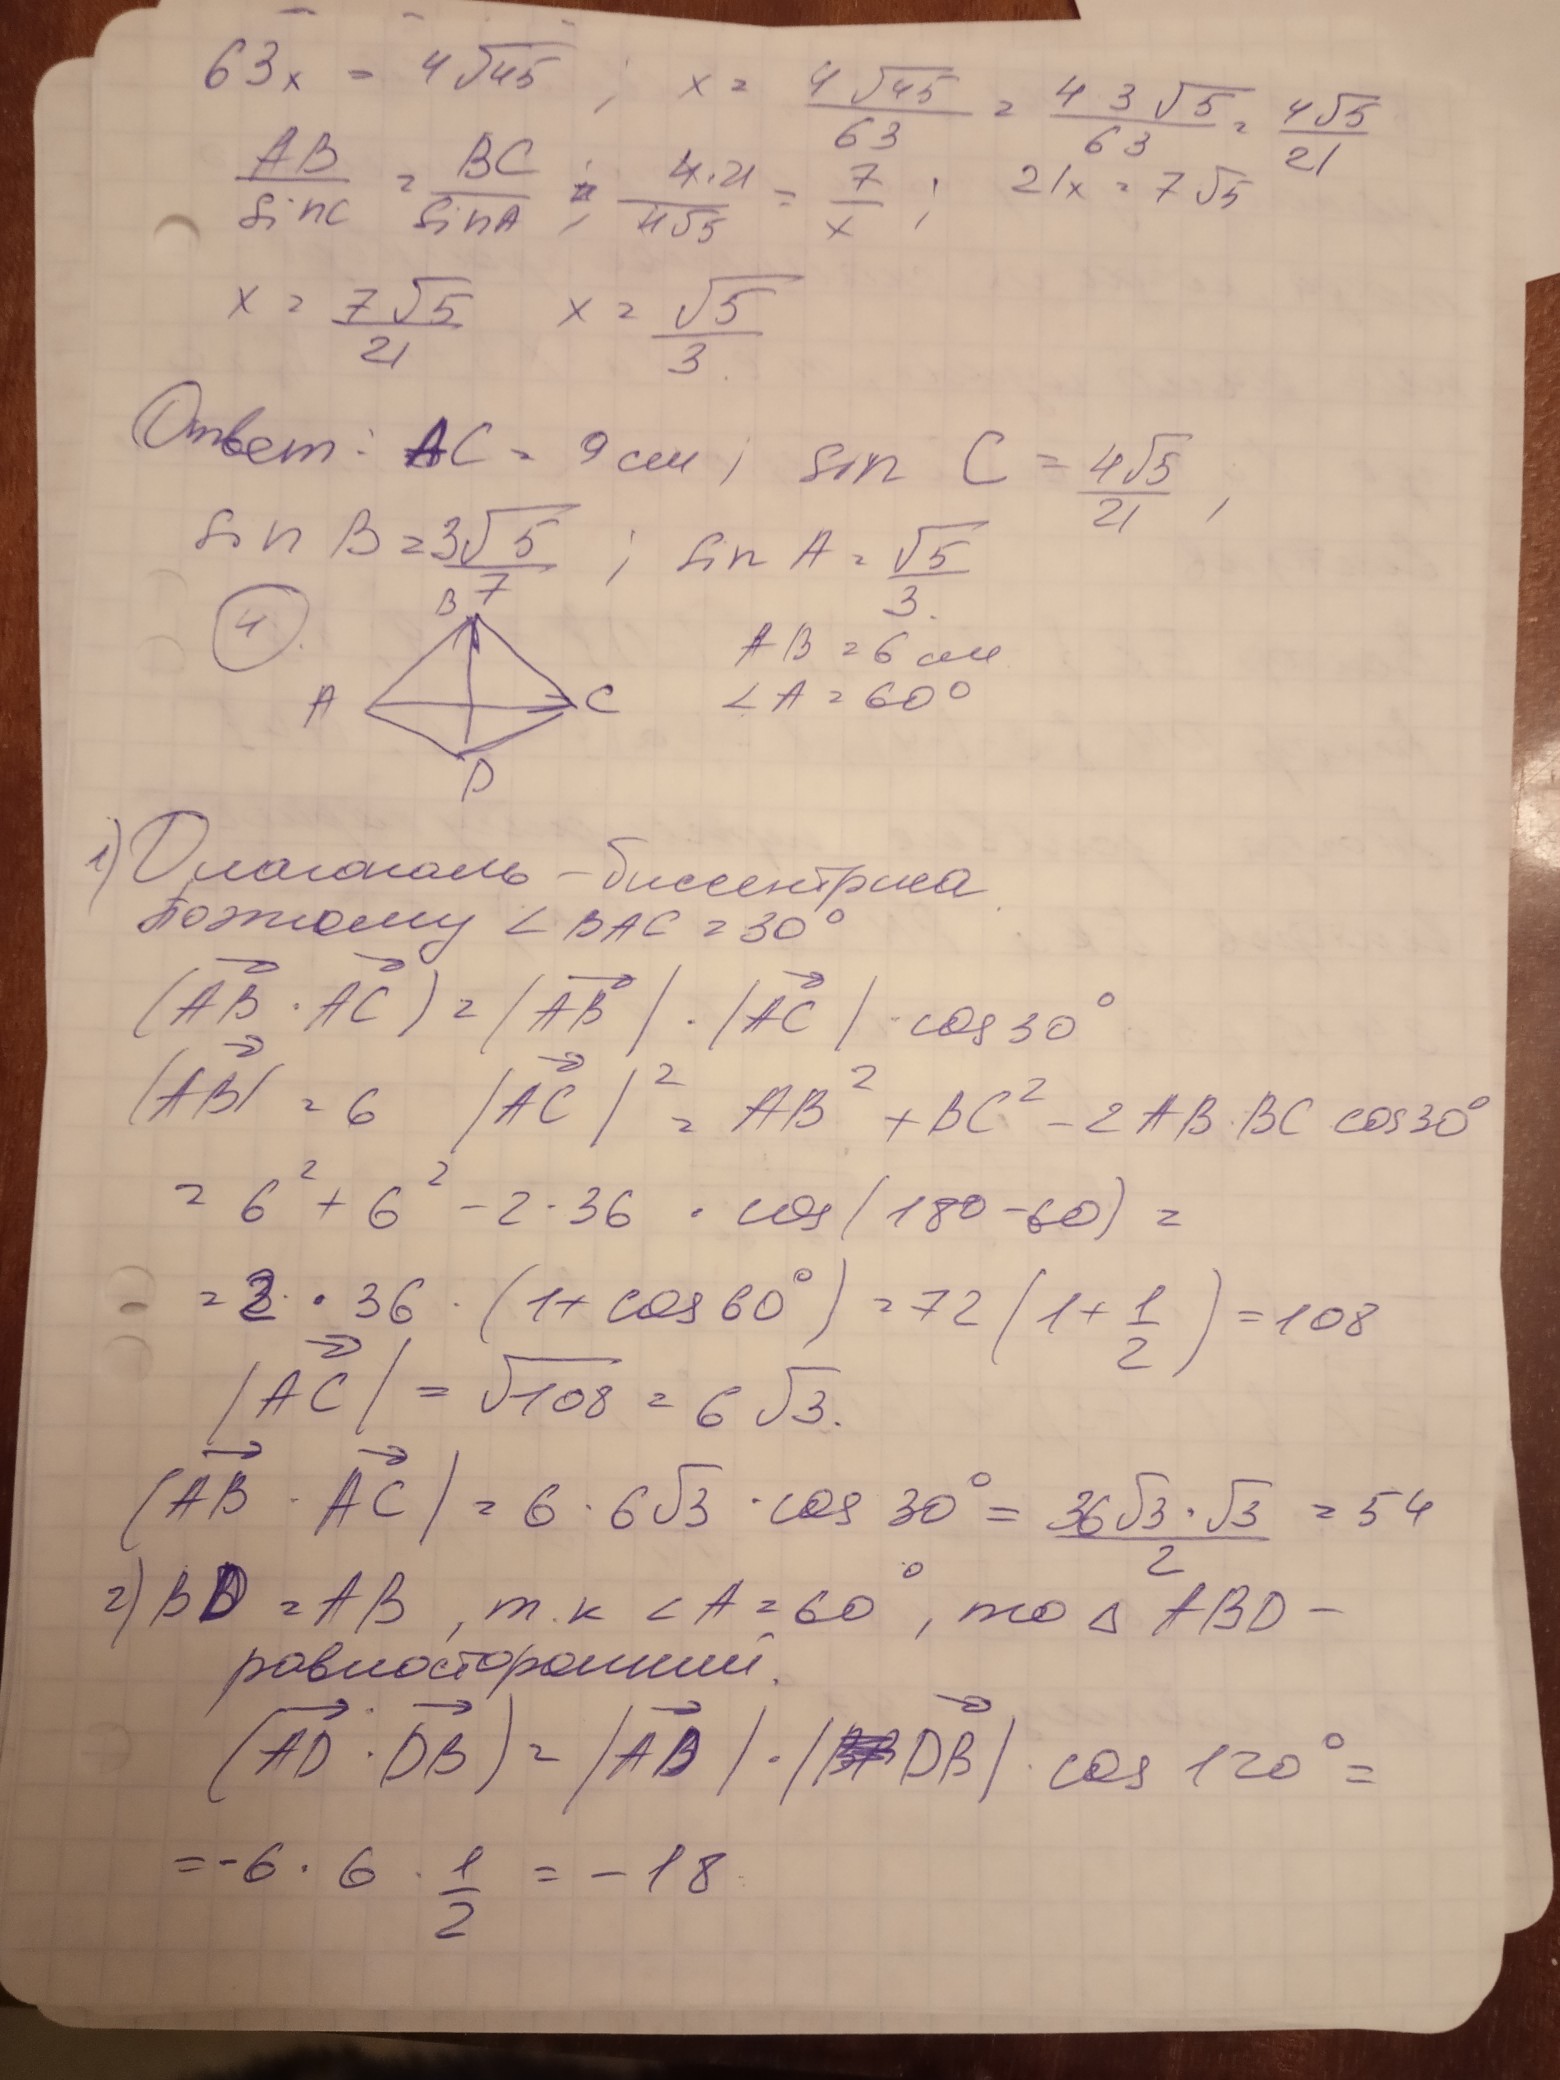 63x = 4√45 ; x = 4√45/63 = 4 3√5/63 = 4√5/21
AB/sinC = BC/sinA ; 4·21/4√5 = 7/x ; 21x = 7√5
x = 7√5/21 x = √5/3.
Ответ: AC = 9 см ; sin C = 4√5/21 ,
sin B = 3√5/7 ; sin A = √5/3.
4.
B
A C
D
AB = 6 см
∠A = 60°
1) Диагональ – биссектриса.
Поэтому ∠BAC = 30°
(AB→ · AC→) = |AB→| · |AC→| · cos 30°
|AB→| = 6 |AC→|² = AB² + BC² – 2AB·BC cos30°
= 6² + 6² – 2·36 · cos(180 – 60) =
= 2 · 36 · (1 + cos60°) = 72(1 + 1/2) = 108
|AC→| = √108 = 6√3.
(AB→ · AC→) = 6 · 6√3 · cos 30° = 36√3·√3/2 = 54
2) BD = AB , т.к ∠A = 60° , то △ ABD –
равносторонний.
(AD→ · DB→) = |AD→| · |DB→| · cos 120° =
= -6 · 6 · 1/2 = – 18